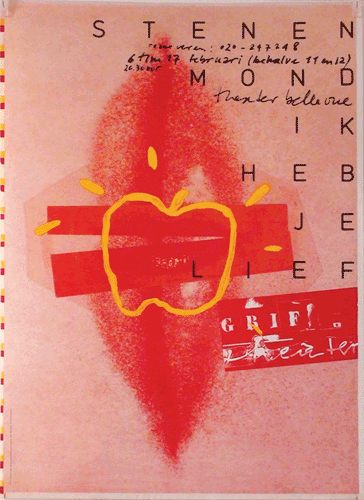 STENEN
reserveren: 020-247248
6 t/m 17 februari (behalve 11 en 12)
20.30 uur
MOND
theater bellevue
IK
HEB
JE
LIEF
GRIF
theater